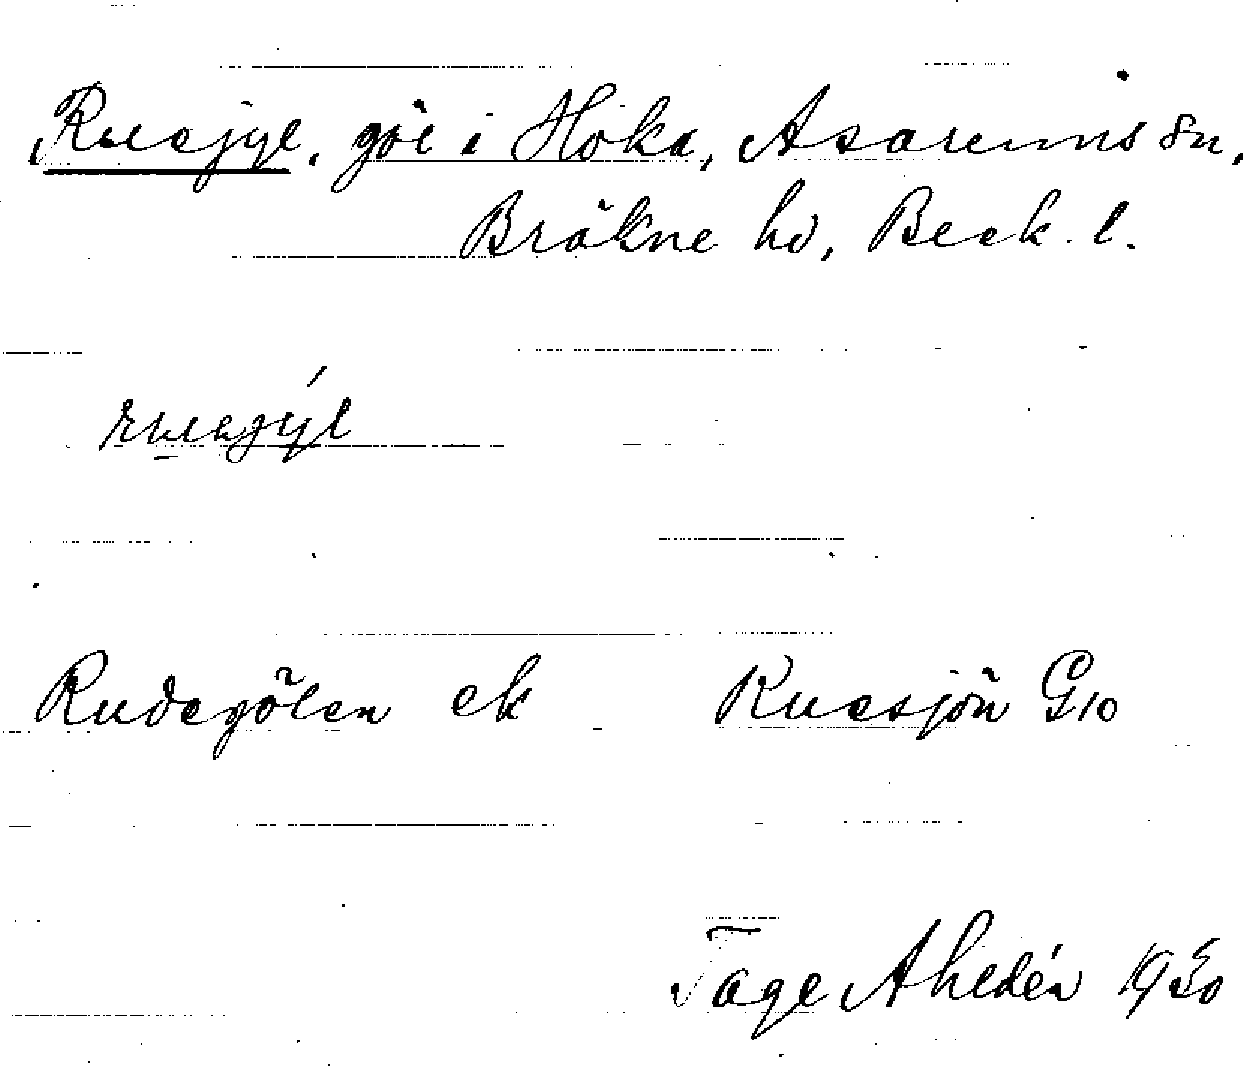 Ruesjyl, göl i Hoka, Asarums sn,
Bräkne hd, Blek. l.
ruesjýl
Rudegölen ek Ruesjön G10
Tage Ahldén 1930